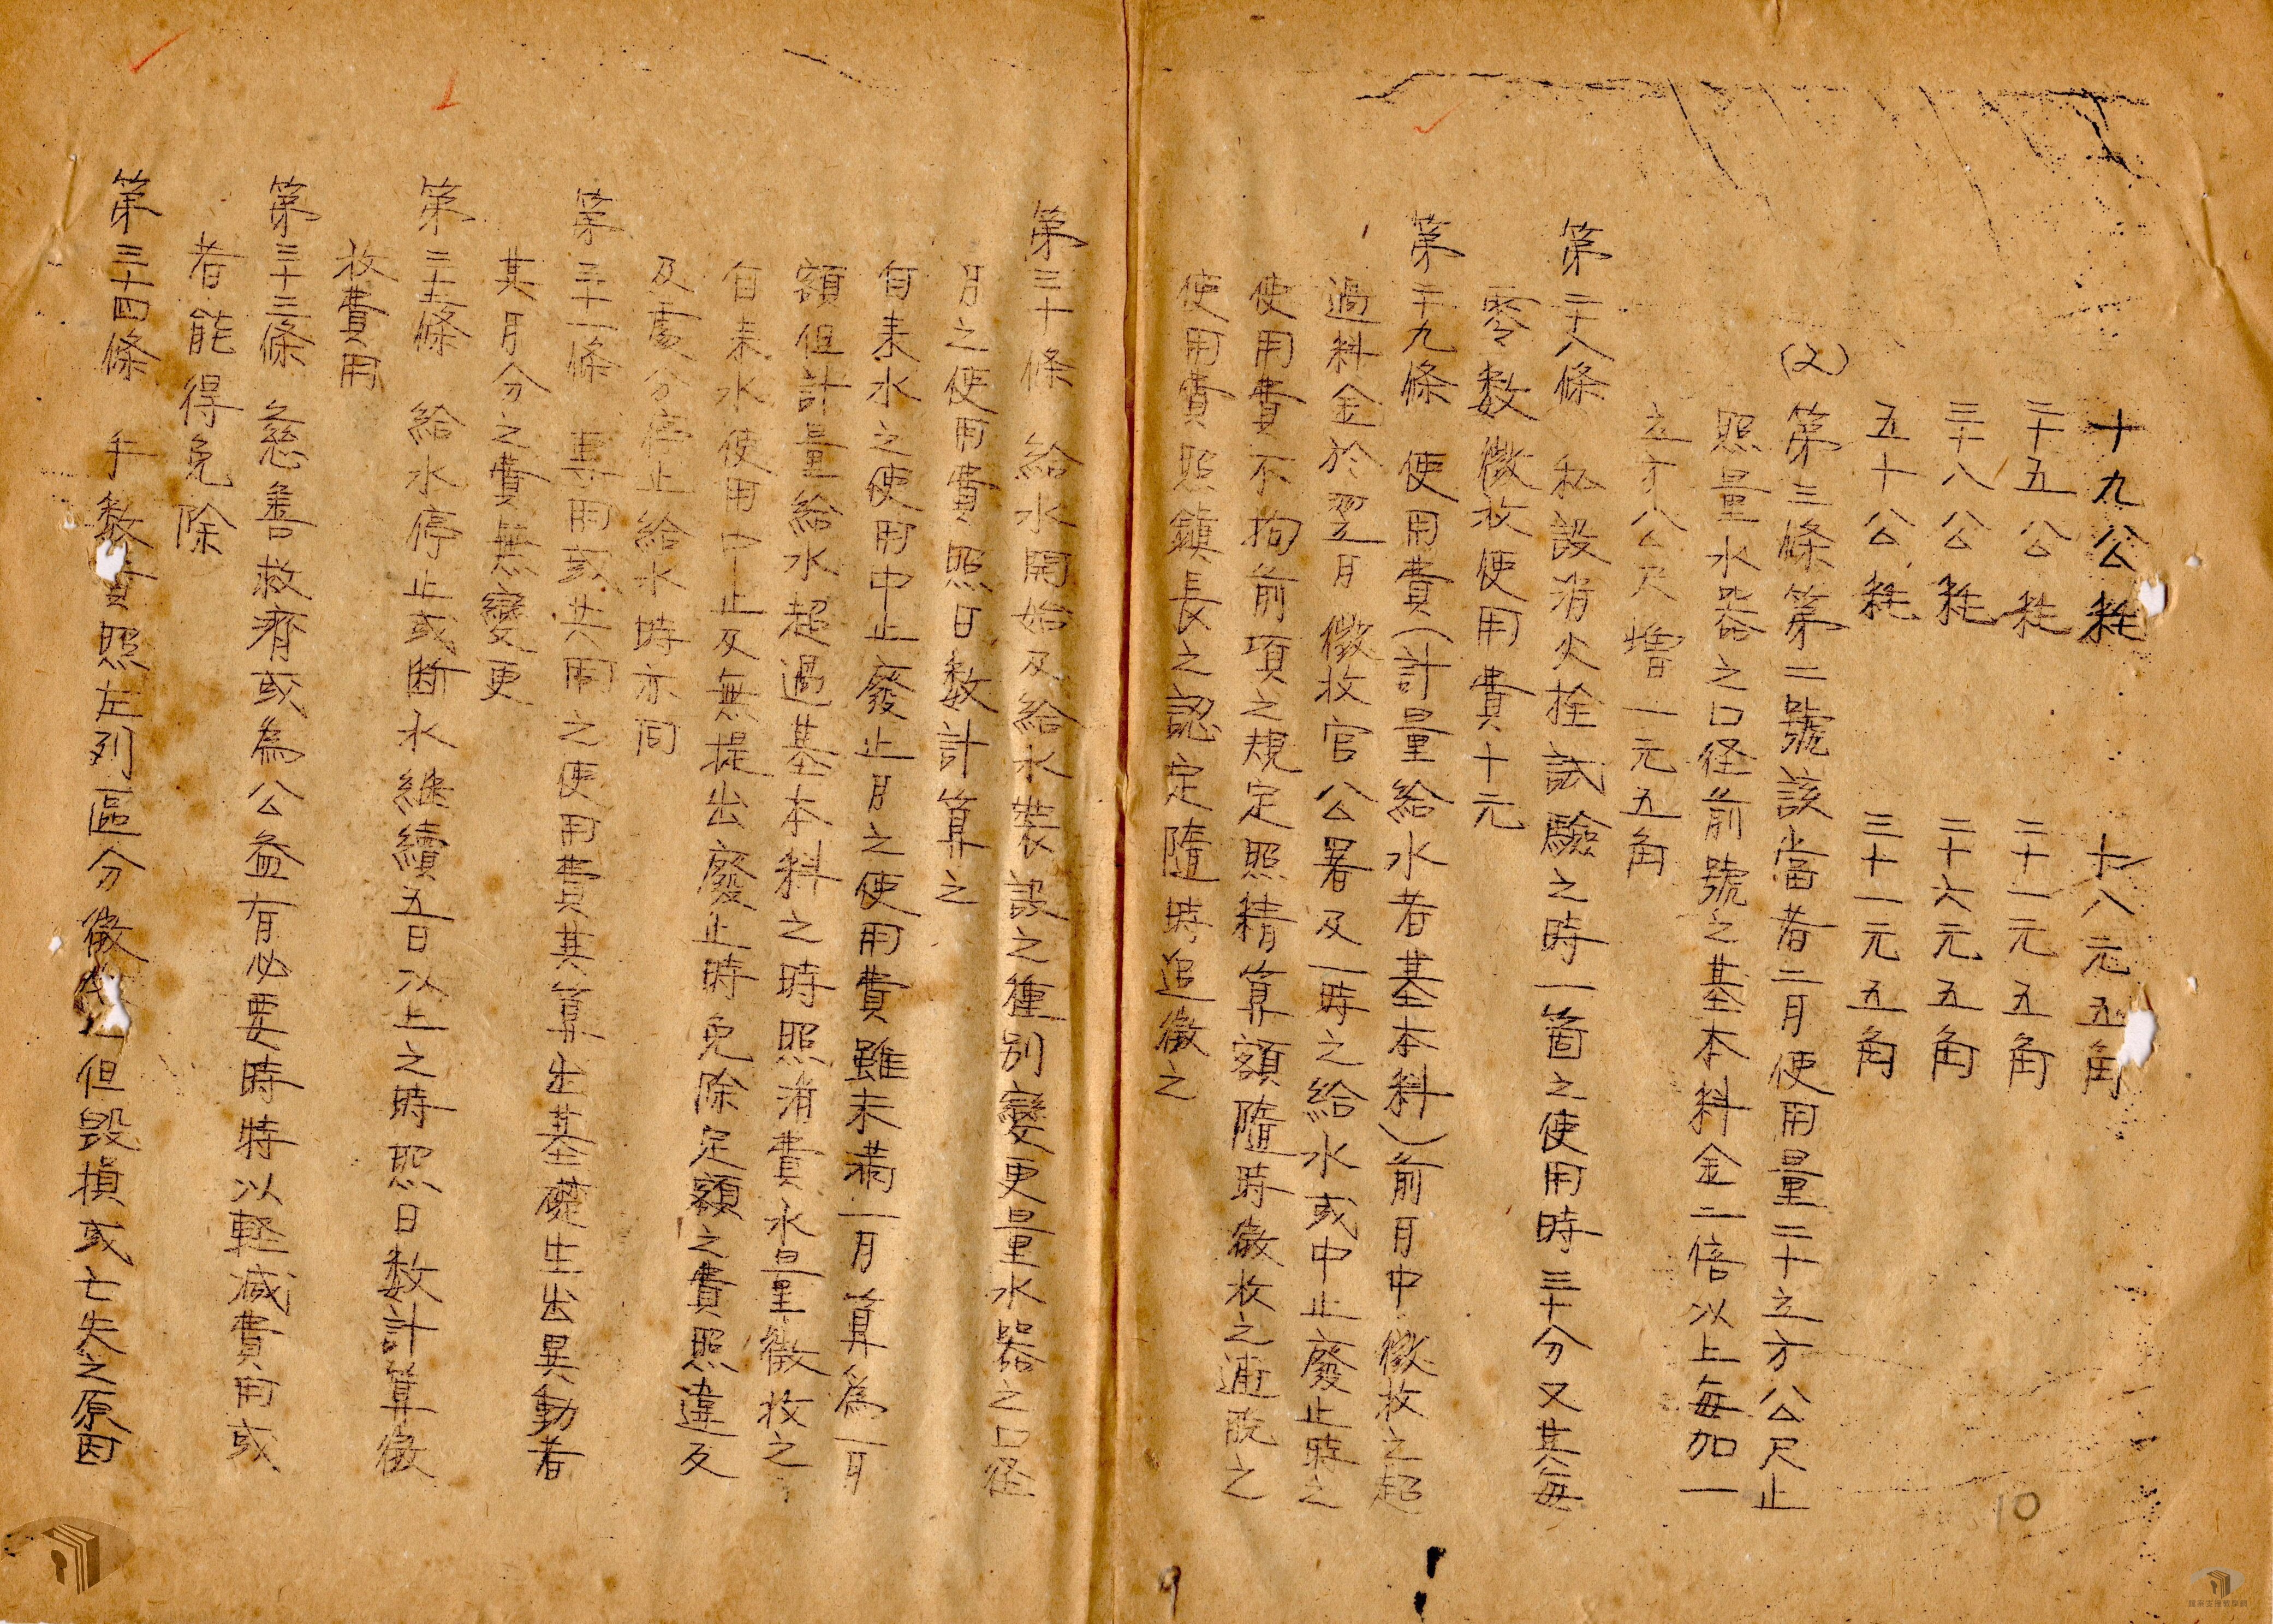 十九公粍　十八元五角
二十五公粍　二十一元五角
三十八公粍　二十六元五角
五十公粍　三十一元五角
(2)第三條第二號該當者二月使用量二十立方公尺止
照量水器之口径前號之基本料金二倍以上每加一
立方公尺增一元五角
第二十八條　私設消火拴試驗之時一箇之使用時三十分又其每
零数徵收使用費十元
第二十九條　使用費(計量給水者基本料)前月中徵收之超
過料金於翌月徵收官公署及一時之給水或中止廢止時之
使用費不拘前項之規定照精算額隨時徵收之逋脫之
使用費照鎮長之認定隨時追徵之
第三十條　給水開始及給水裝設之種別變更量水器之口径
月之使用費照日数計算之
自来水之使用中止廢止月之使用費雖未滿一月算為一月
額但計量給水超過基本料之時照消費水量徵收之
自来水使用中止及無提出廢止時免除定額之費照違反
及處分停止給水時亦同
第三十一條　專用或共用之使用費其算出基礎生出異動者
其月分之費無變更
第三十二條　給水停止或断水継續五日以上之時照日数計算徵
收費用
第三十三條　慈善救濟或為公益有必要時特以軽減費用或
者能得免除
第三十四條　手数費照左列區分徵但毀損或亡失之原因
10
9